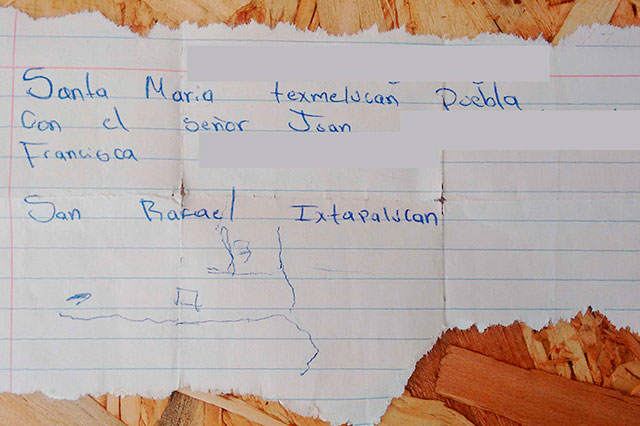 Santa Maria texmelucan Puebla
Con el señor Juan
Francisca
San Rafael Ixtapalucan